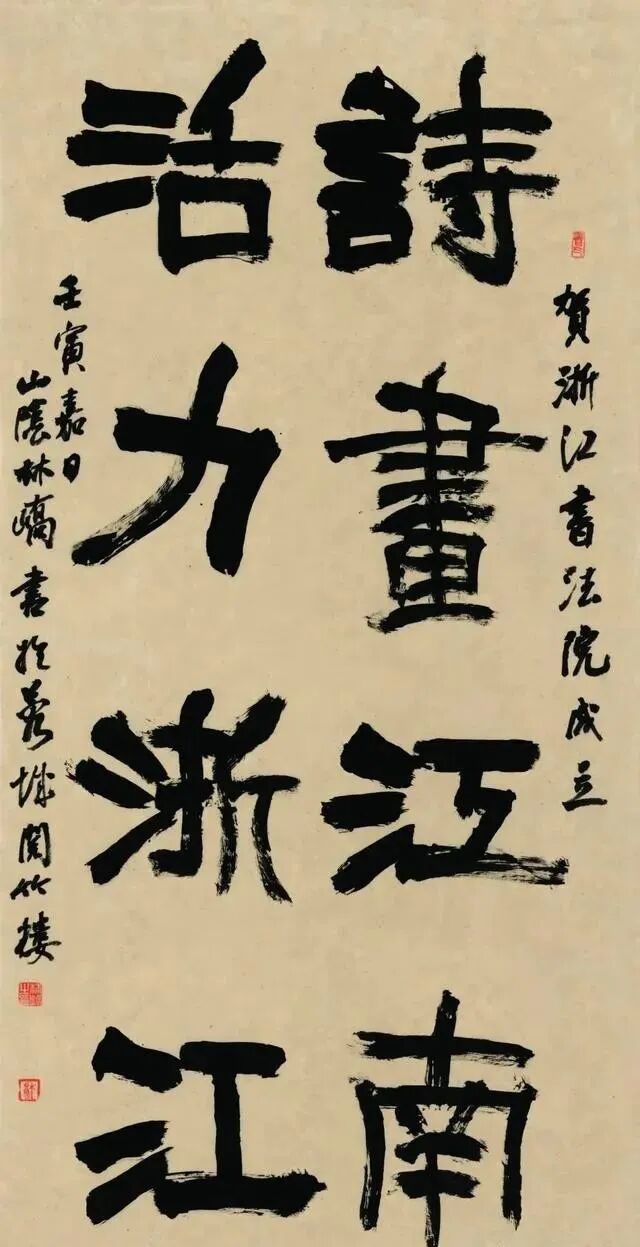 賀浙江書法院成立
詩畫江南
活力浙江
壬寅嘉日
山陰林嶠書於蓉城聞竹樓